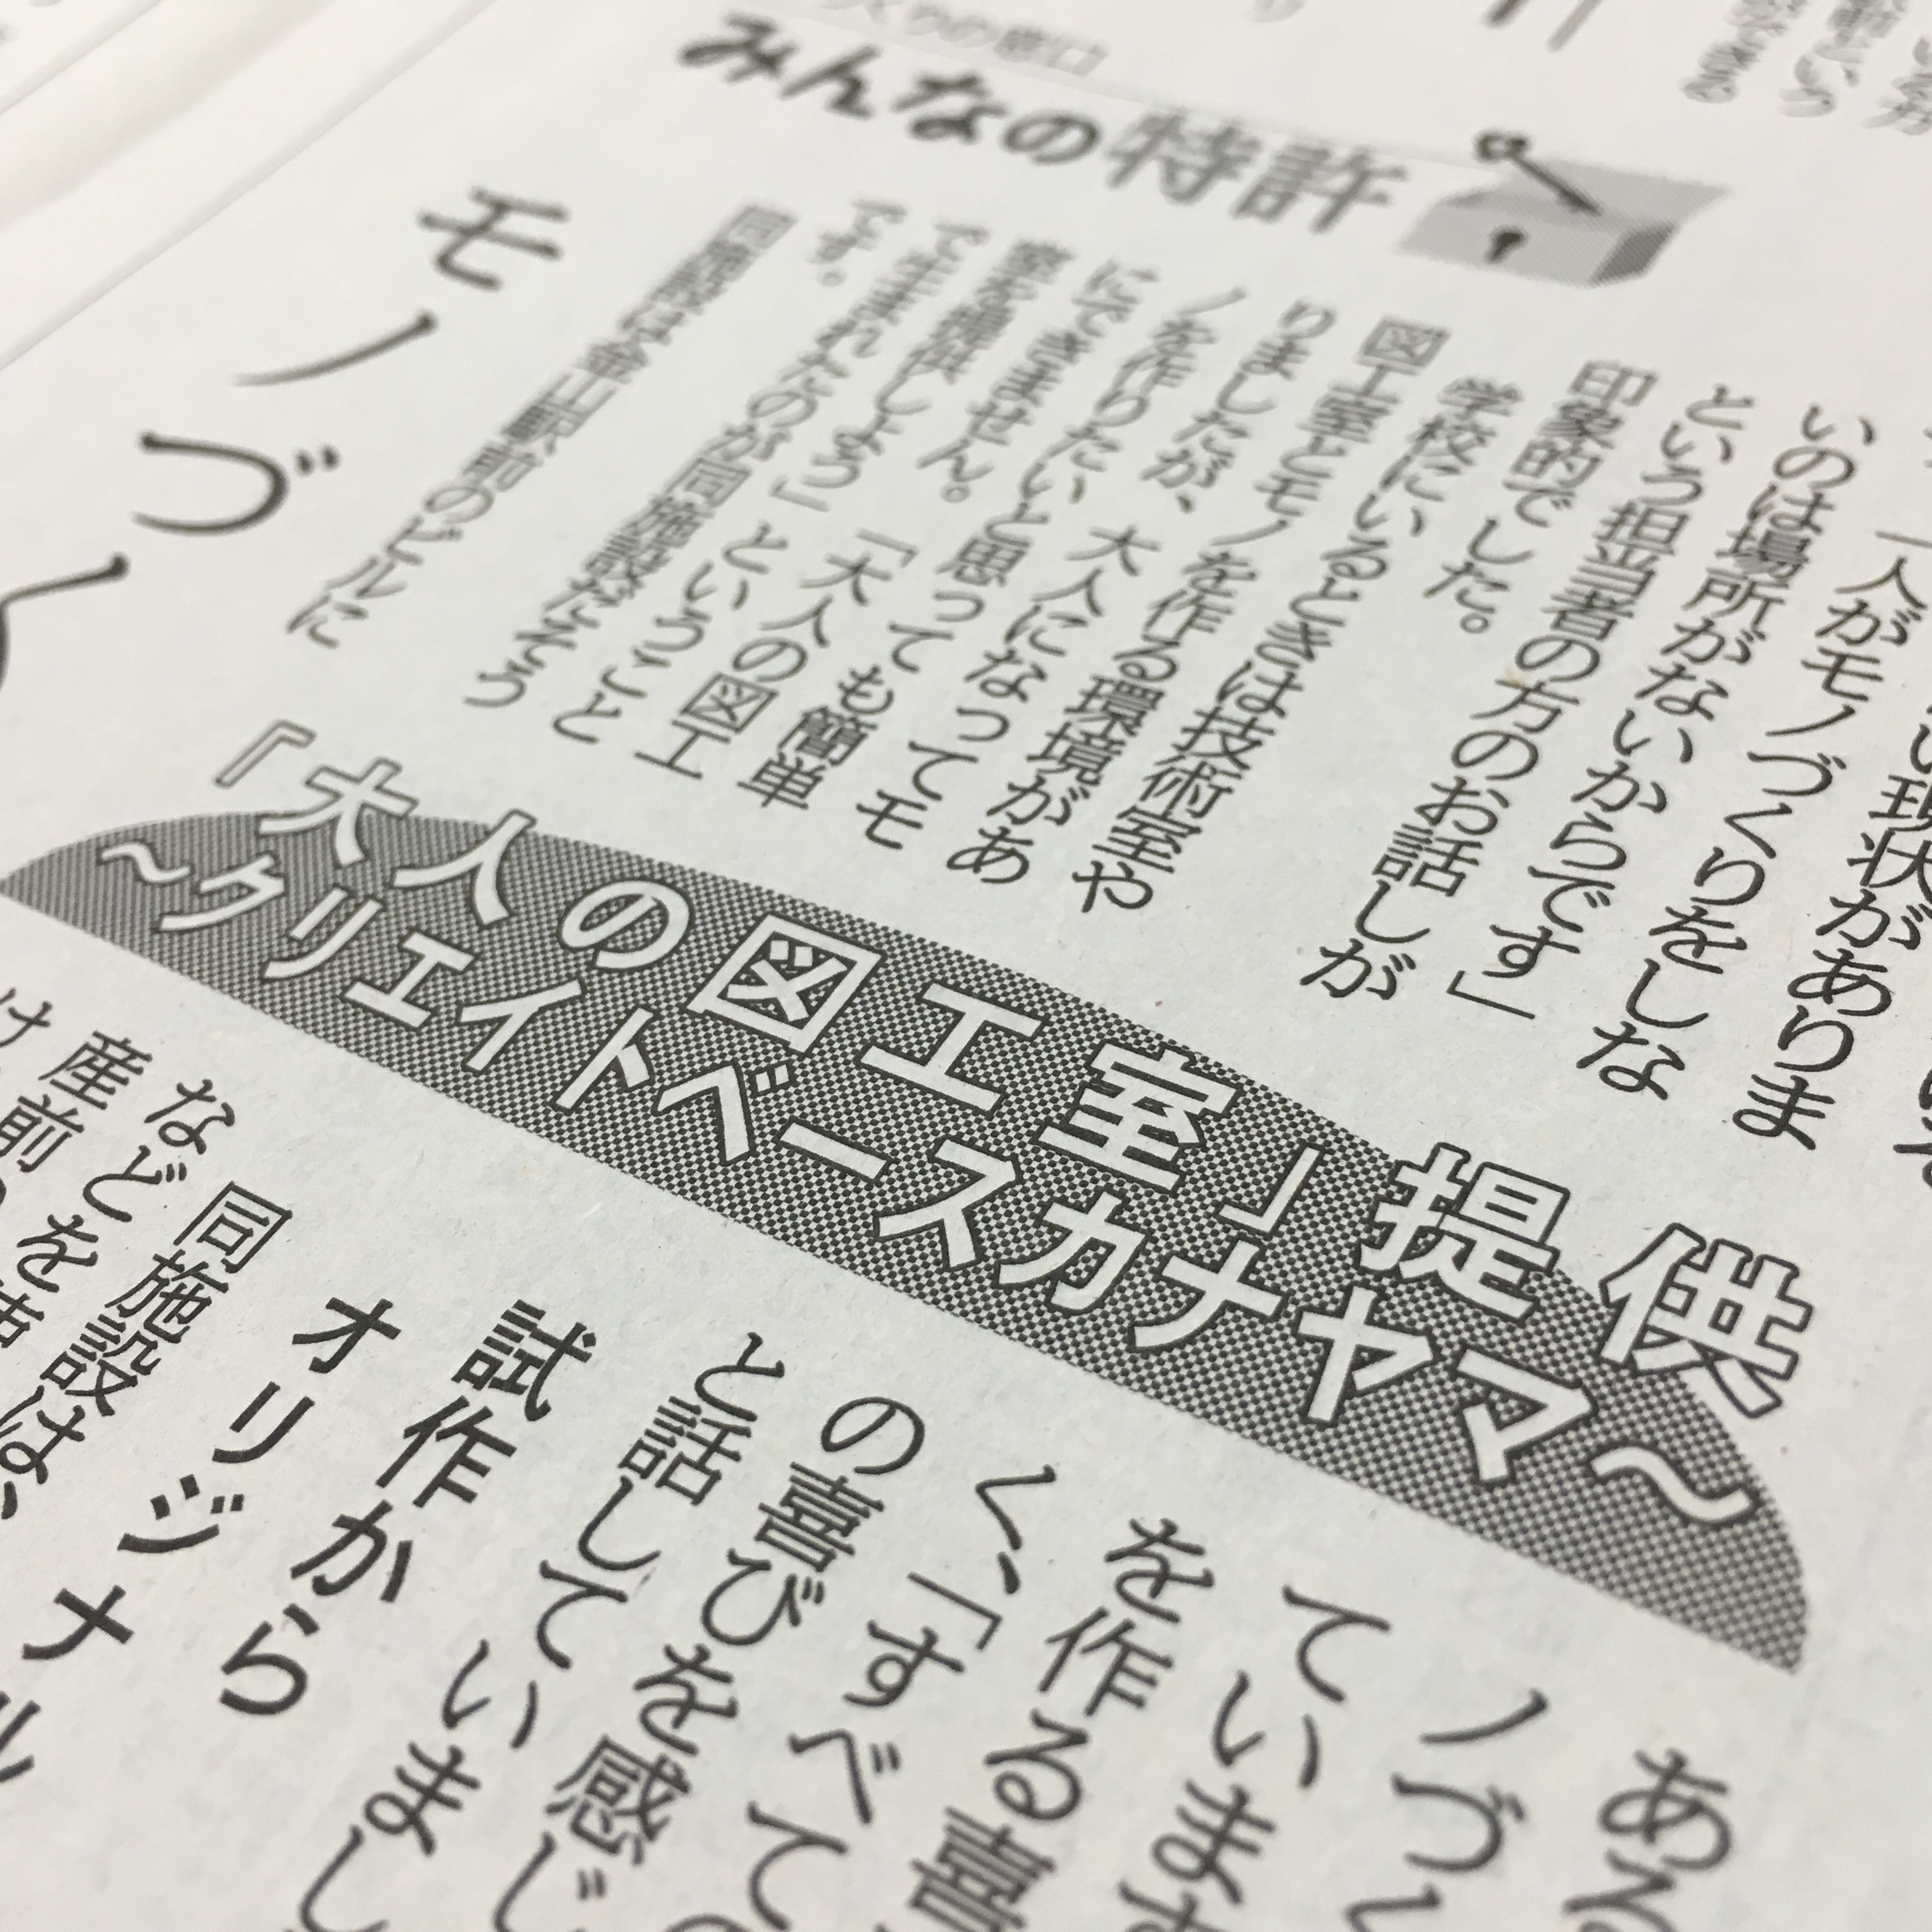 くりの窓口
みんなの特許
い現状がありま
「人がモノづくりをしな
いのは場所がないからです」
という担当者の方のお話しが
印象的でした。
学校にいるときは技術室や
図工室とモノを作る環境があ
りましたが、大人になってモ
ノを作りたいと思っても簡単
にできません。「大人の図工
室を提供しよう」ということ
で生まれたのが同施設だそう
です。
同施設は金山駅前のビルに
モノづく
『大人の図工室』提供
～クリエイトベースカナヤマ～
ある
ノづく
ていま
を作る喜
く、「すべて
の喜びを感じ
と話していまし
試作から
オリジナル
同施設は、
などを
産前